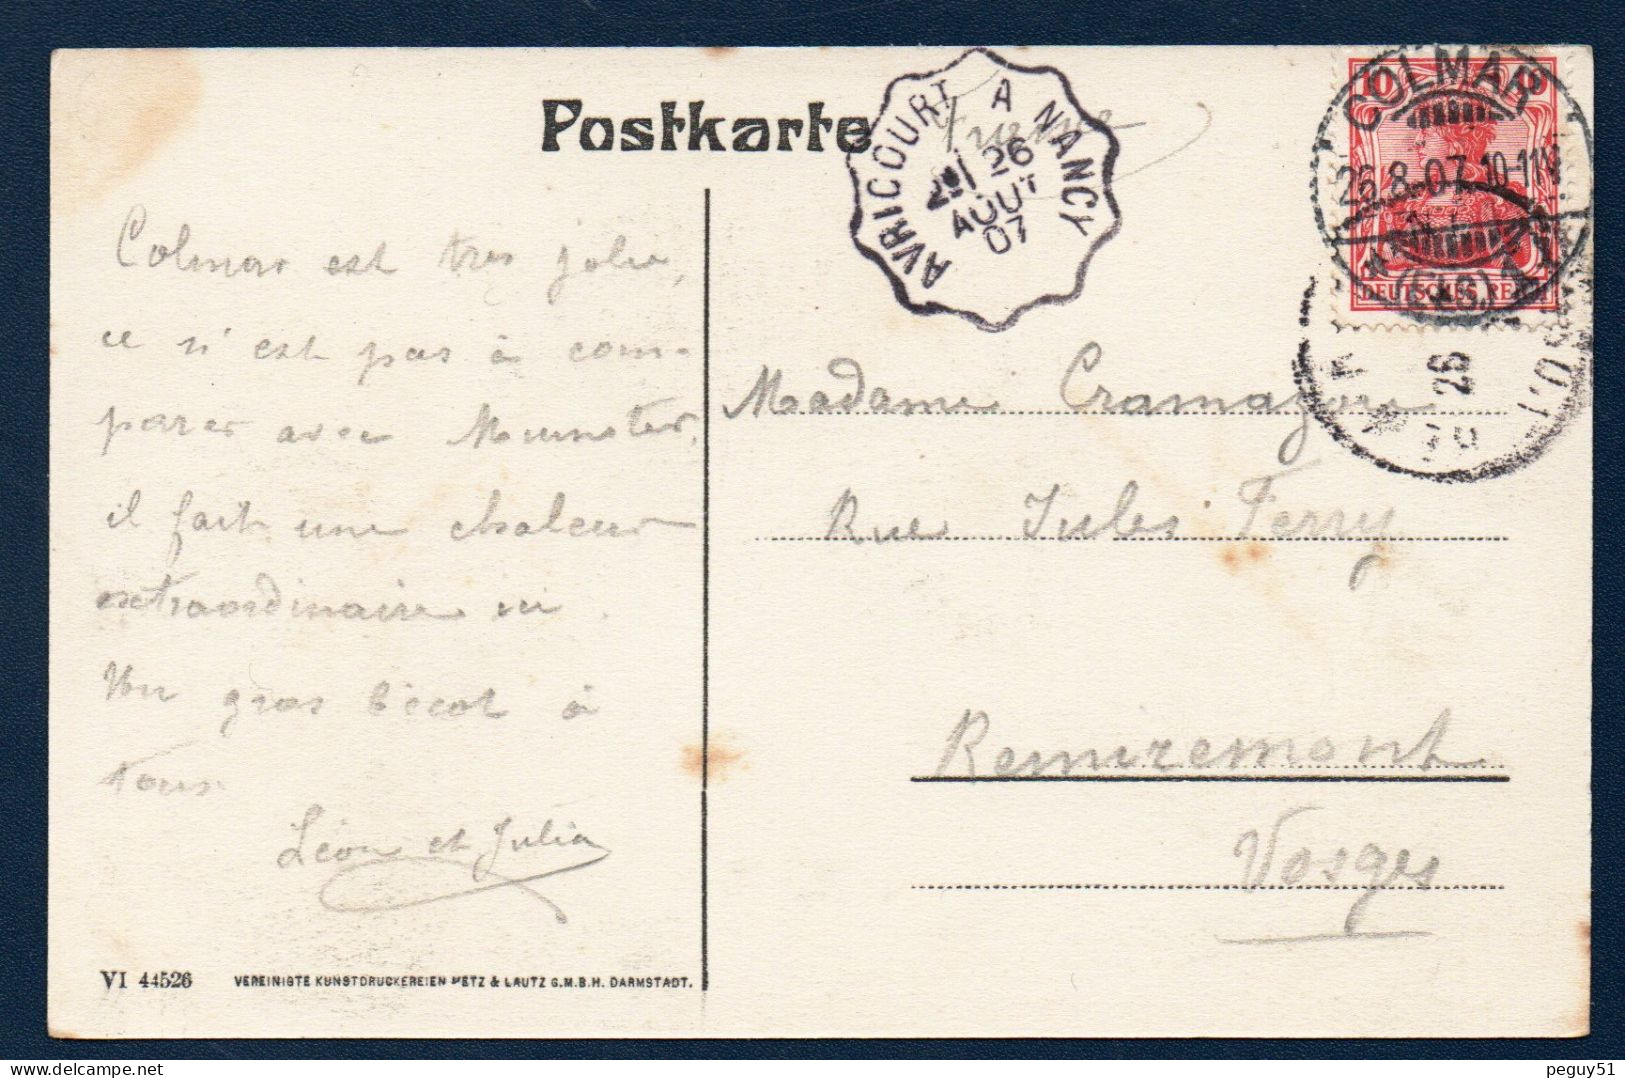 Postkarte
France
AVRICOURT A NANCY
26
AOUT
07
COLMAR
26.8.07.10-11V.
(ELS)
DEUTSCHES REICH
26
Colmar est très jolie,
ce n'est pas à com-
parer avec Munster,
il fait une chaleur
extraordinaire ici
Un gros bécot à
tous.
Léon et Julia
Madame Cramazou
Rue Jules Ferry
Remiremont
Vosges
VI 44526
VEREINIGTE KUNSTDRUCKEREIEN METZ & LAUTZ G.M.B.H. DARMSTADT.
peguy51